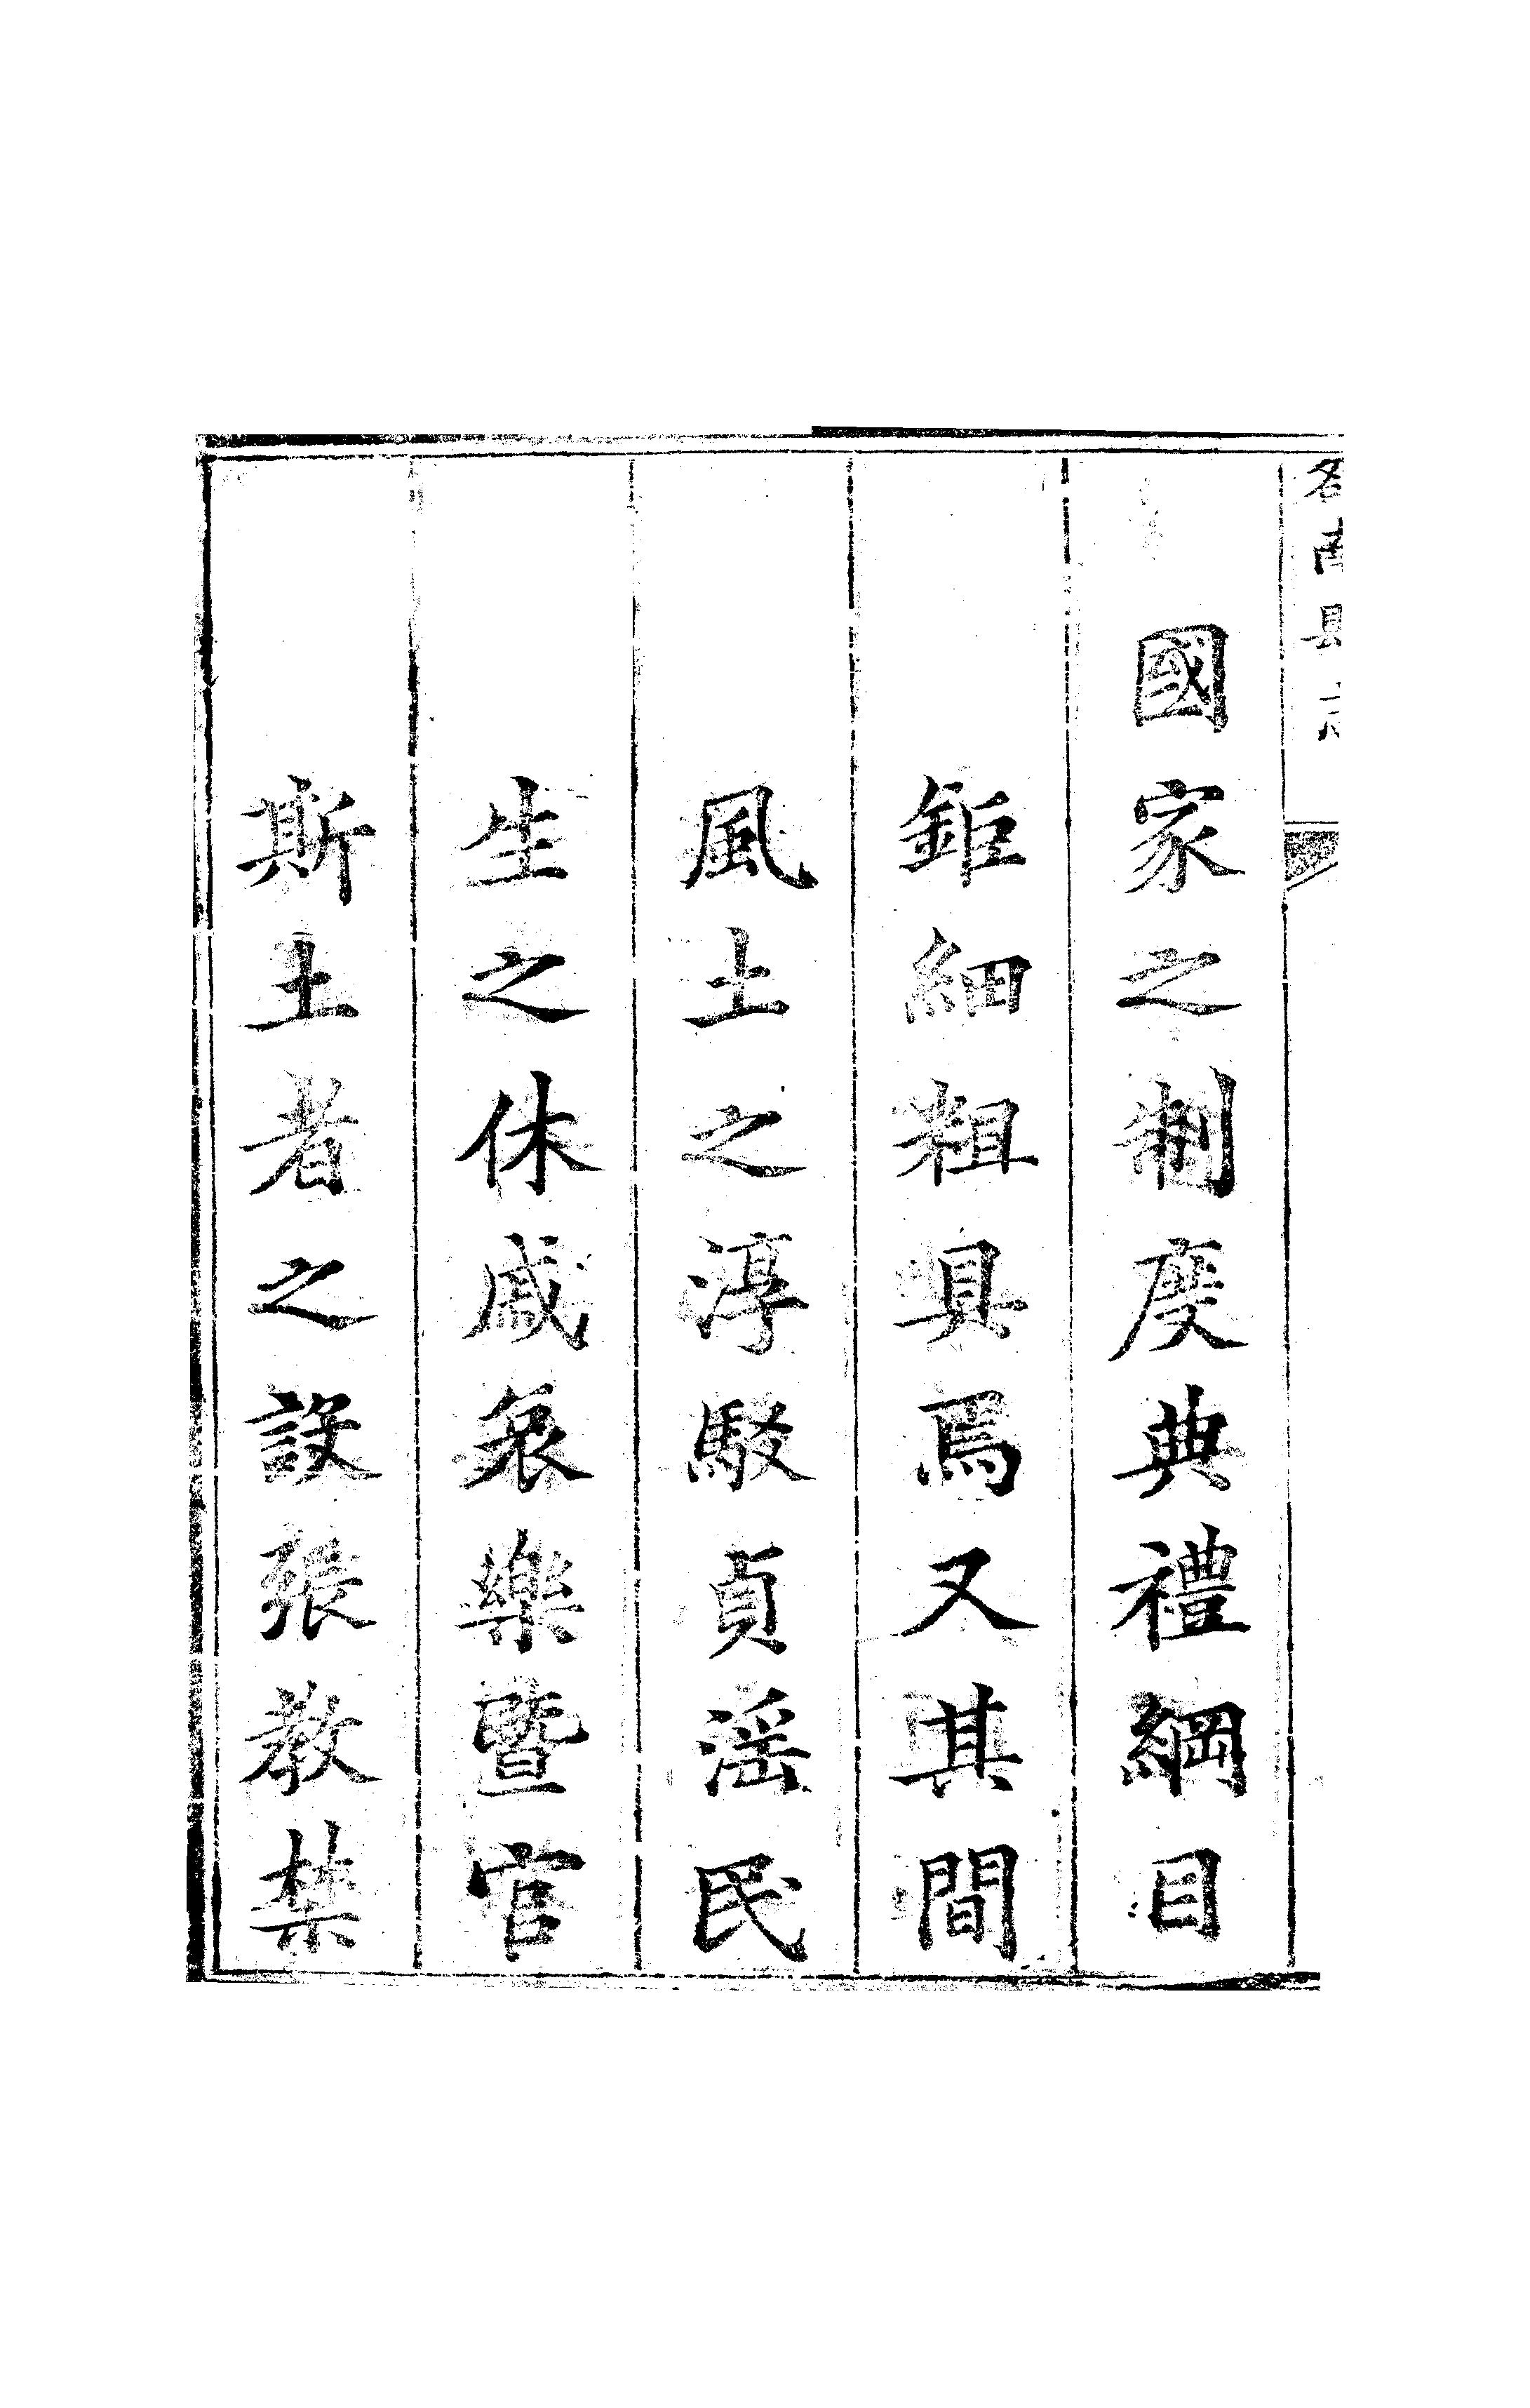 國家之制度典禮綱目
鉅細粗具焉又其間
風土之淳駁貞淫民
生之休戚哀樂暨官
斯土者之設張教禁